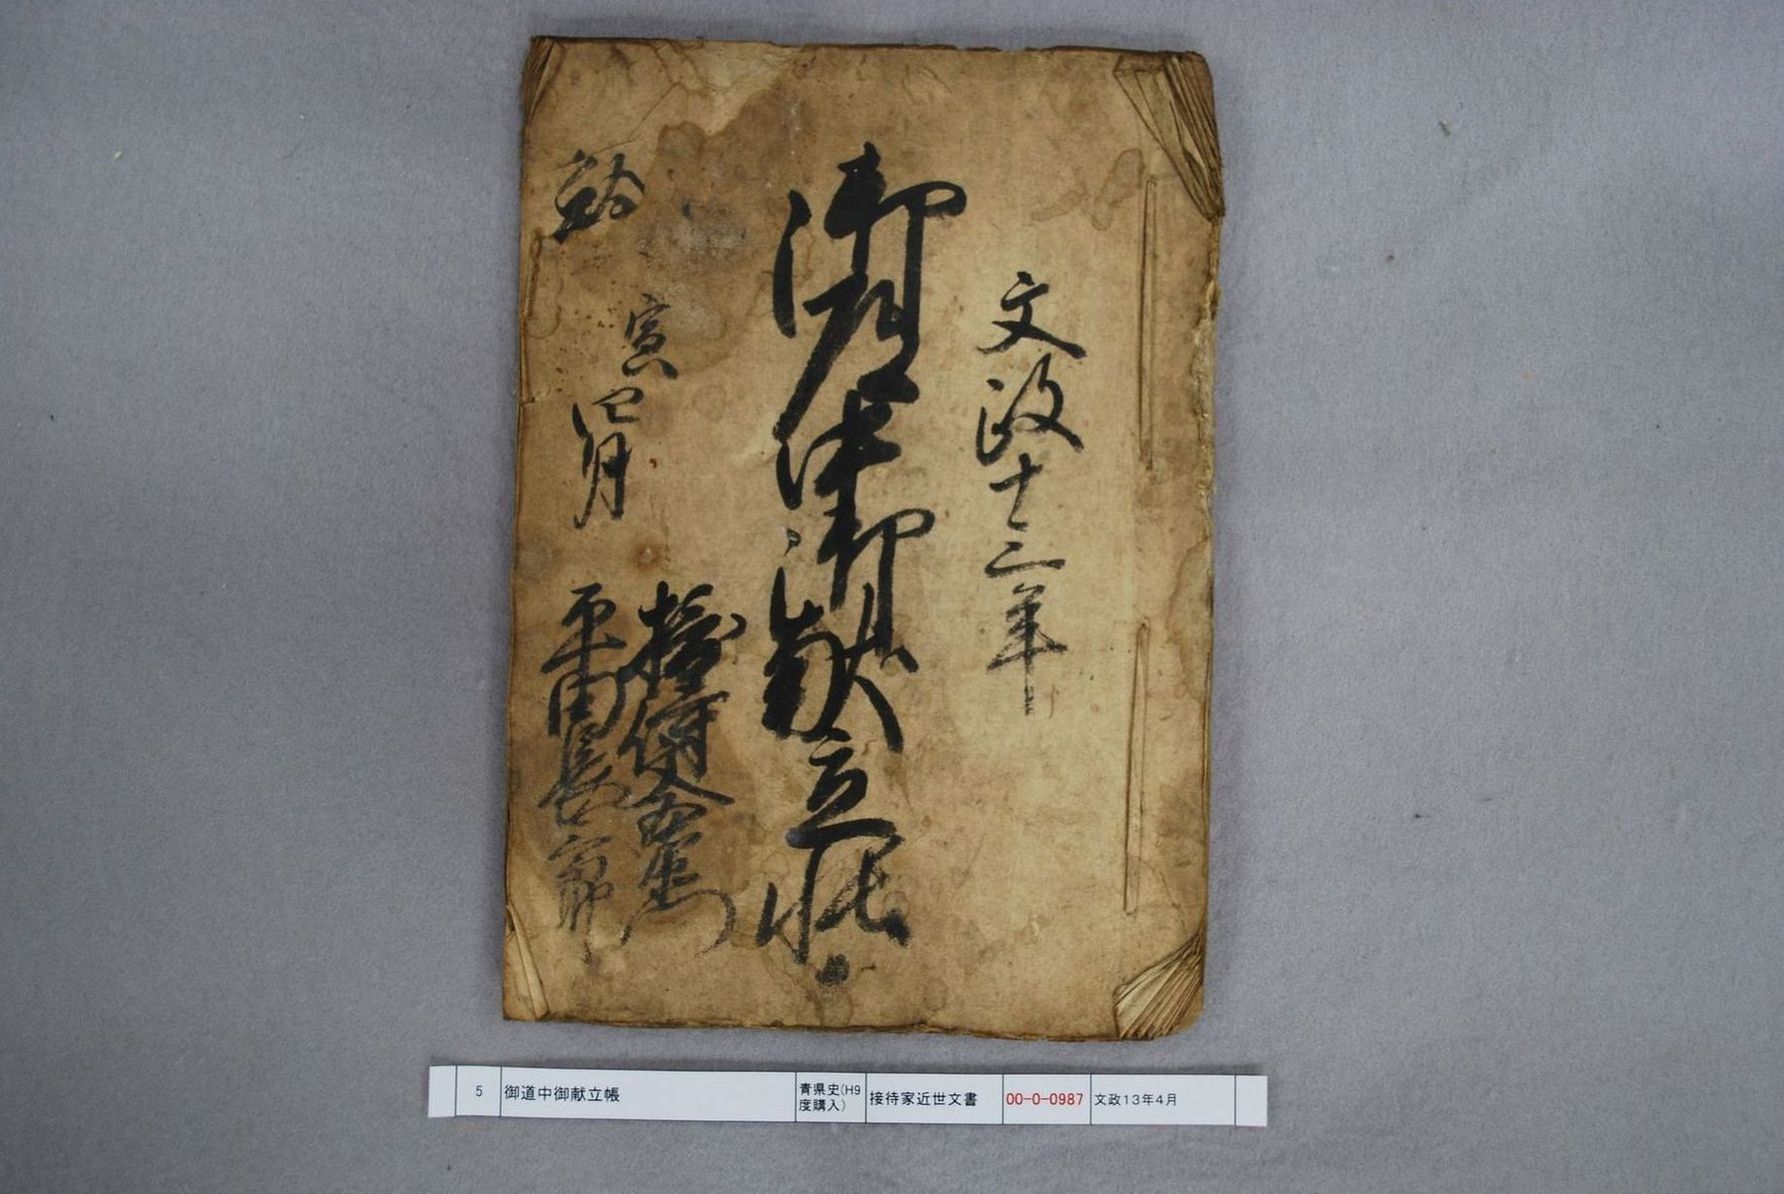 文政十三年
御道中御献立帳
寅四月
接待文右衛門
平田長寿郎
5 御道中御献立帳 青県史(H9度購入) 接待家近世文書 00-0-0987 文政13年4月